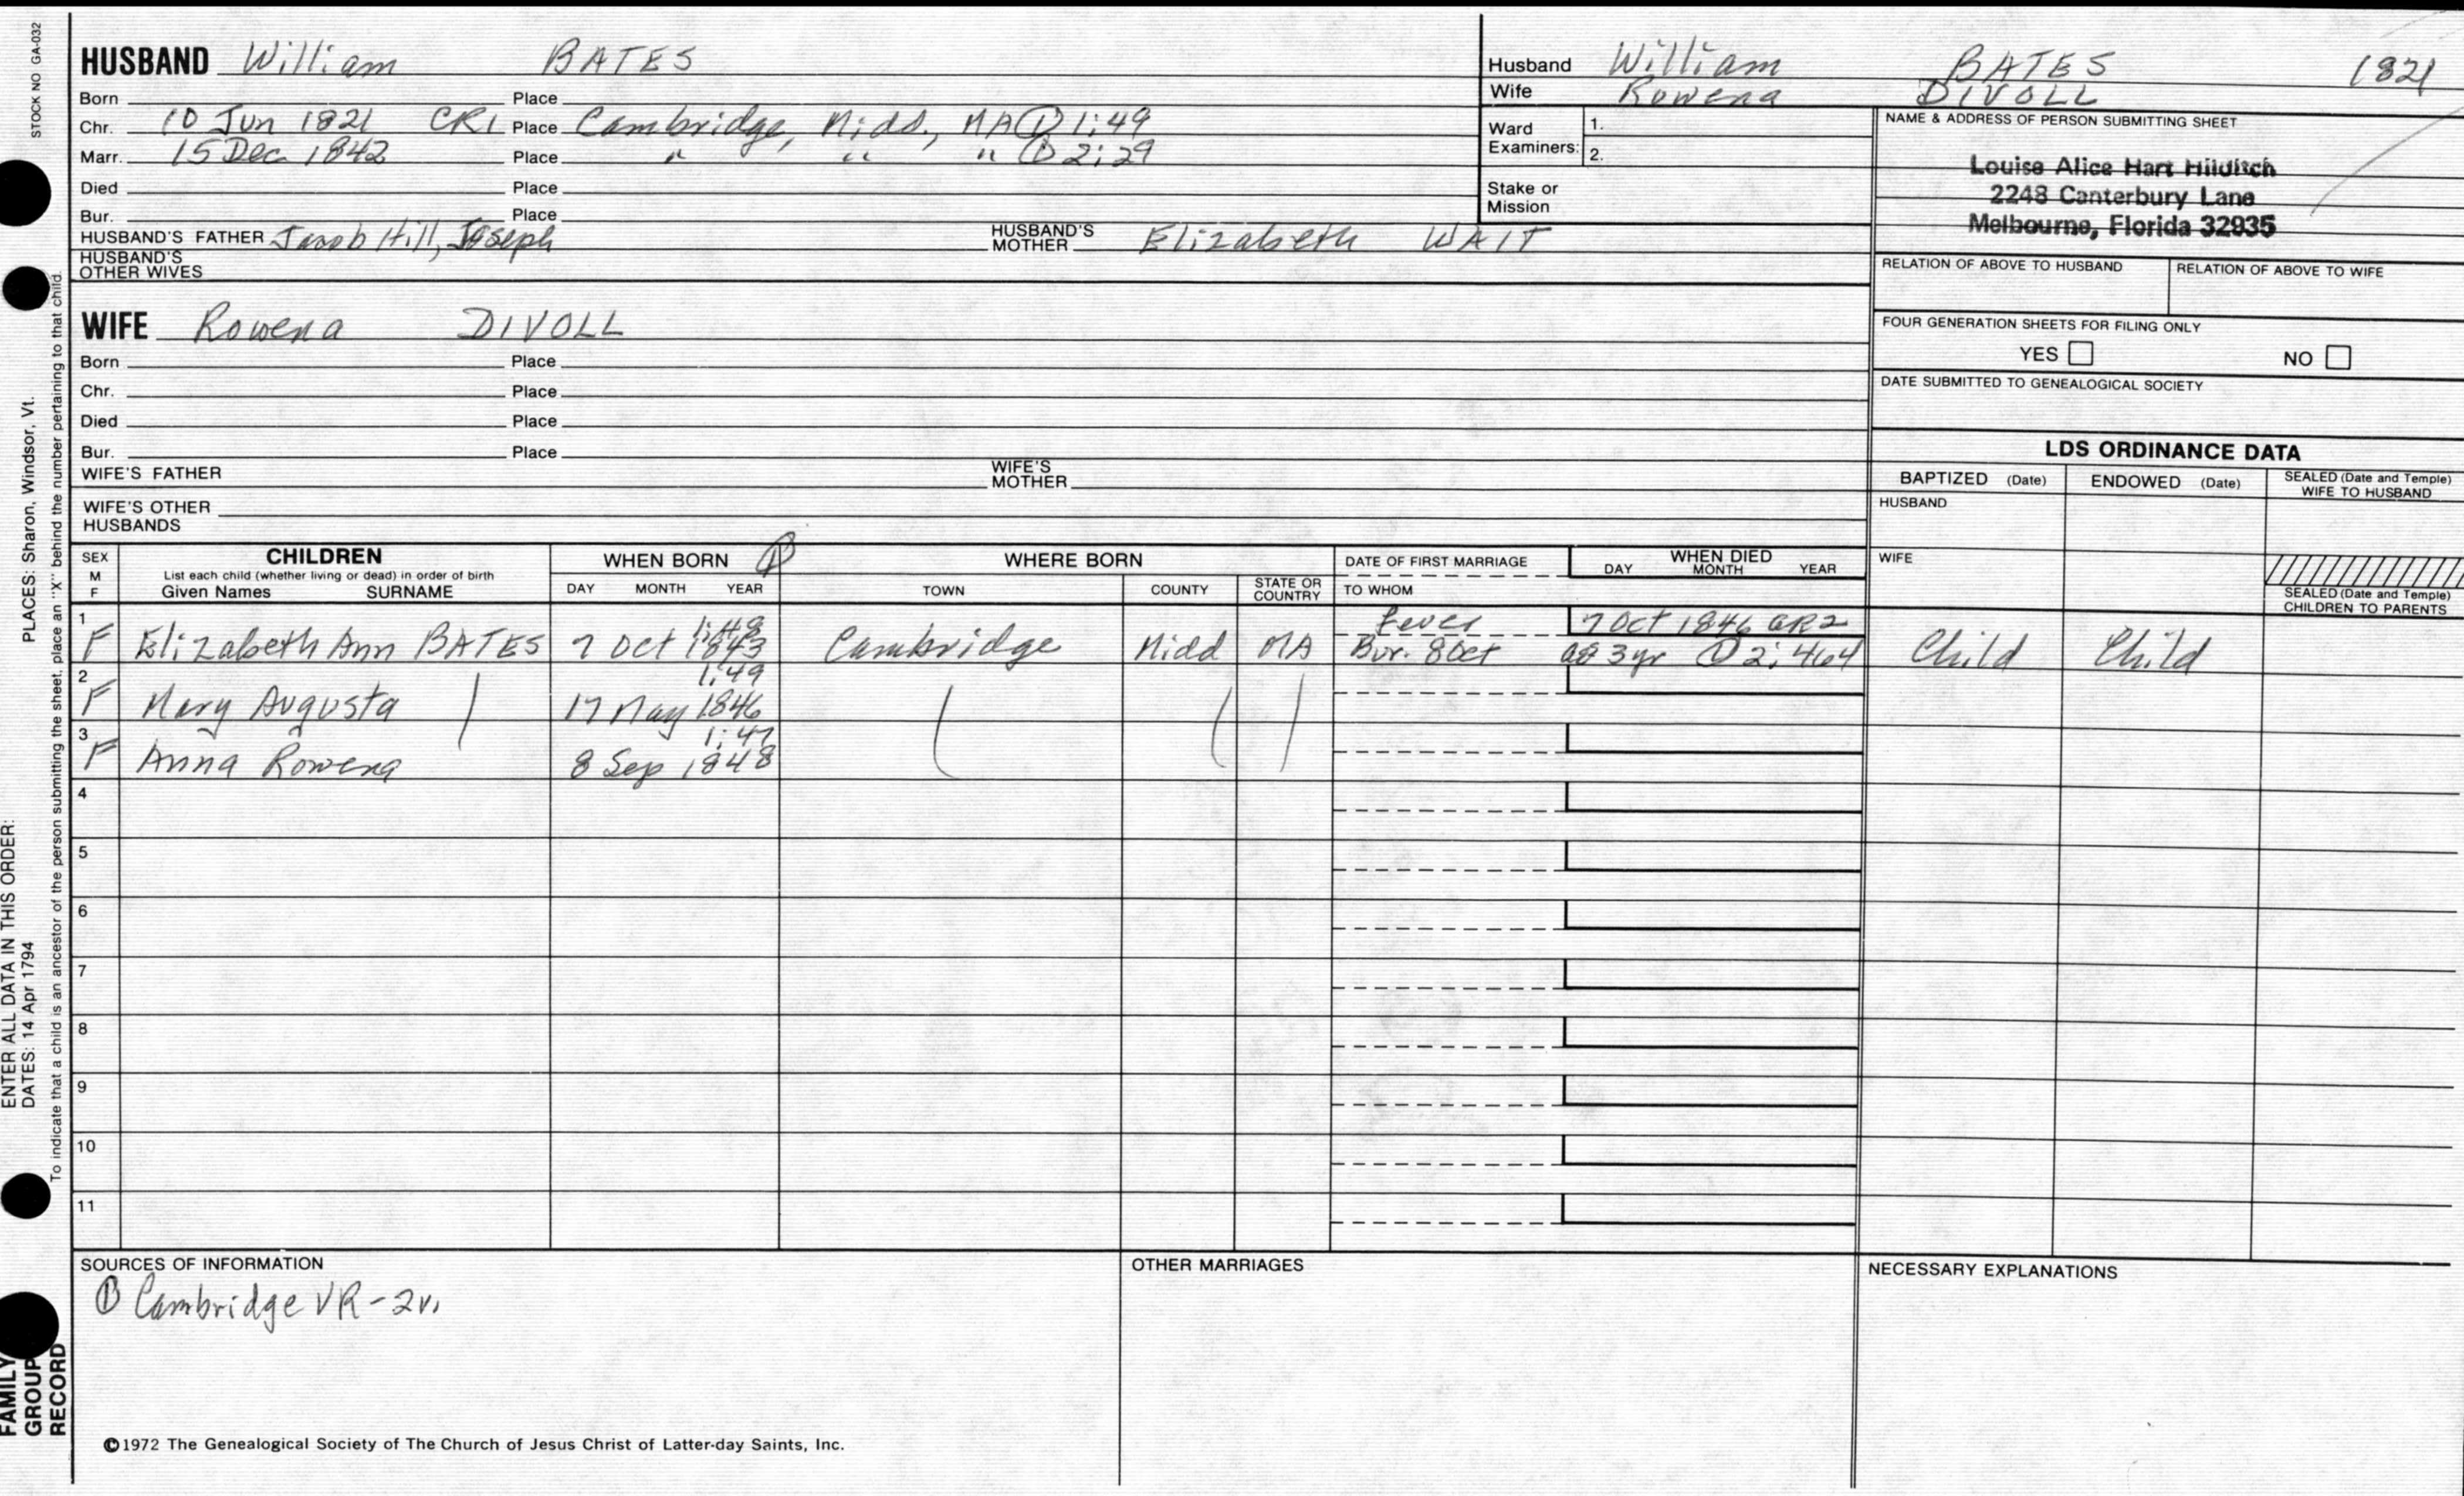 STOCK NO GA-032
HUSBAND William BATES
Born Place
Chr. 10 Jun 1821 CR1 Place Cambridge, Midd., MA ① 1:49
Marr. 15 Dec 1842 Place " " " ① 2:29
Died Place
Bur. Place
HUSBAND'S FATHER Jacob Hill, Joseph HUSBAND'S MOTHER Elizabeth WAIT
HUSBAND'S OTHER WIVES
Husband William BATES 1821
Wife Rowena DIVOLL
Ward Examiners: 1.
2.
Stake or Mission
NAME & ADDRESS OF PERSON SUBMITTING SHEET
Louise Alice Hart Hilditch
2248 Canterbury Lane
Melbourne, Florida 32935
RELATION OF ABOVE TO HUSBAND RELATION OF ABOVE TO WIFE
FOUR GENERATION SHEETS FOR FILING ONLY
YES NO
DATE SUBMITTED TO GENEALOGICAL SOCIETY
WIFE Rowena DIVOLL
Born Place
Chr. Place
Died Place
Bur. Place
WIFE'S FATHER WIFE'S MOTHER
WIFE'S OTHER HUSBANDS
LDS ORDINANCE DATA
BAPTIZED (Date) ENDOWED (Date) SEALED (Date and Temple) WIFE TO HUSBAND
HUSBAND
WIFE
SEALED (Date and Temple) CHILDREN TO PARENTS
SEX M F
CHILDREN
List each child (whether living or dead) in order of birth
Given Names SURNAME
WHEN BORN ①
DAY MONTH YEAR
WHERE BORN
TOWN COUNTY STATE OR COUNTRY
DATE OF FIRST MARRIAGE
TO WHOM
WHEN DIED
DAY MONTH YEAR
1 1:48 Fever 7 Oct 1846 GR2
F Elizabeth Ann BATES 7 Oct 1843 Cambridge Midd MA Bur. 8 Oct ae 3yr ① 2:464 Child Child
2 1:49
F Mary Augusta 17 May 1846
3 1:47
F Anna Rowena 8 Sep 1848
4
5
6
7
8
9
10
11
SOURCES OF INFORMATION
① Cambridge VR-2v.
OTHER MARRIAGES
NECESSARY EXPLANATIONS
©1972 The Genealogical Society of The Church of Jesus Christ of Latter-day Saints, Inc.
ENTER ALL DATA IN THIS ORDER:
DATES: 14 Apr 1794 PLACES: Sharon, Windsor, Vt.
To indicate that a child is an ancestor of the person submitting the sheet, place an "X" behind the number pertaining to that child.
FAMILY
GROUP
RECORD